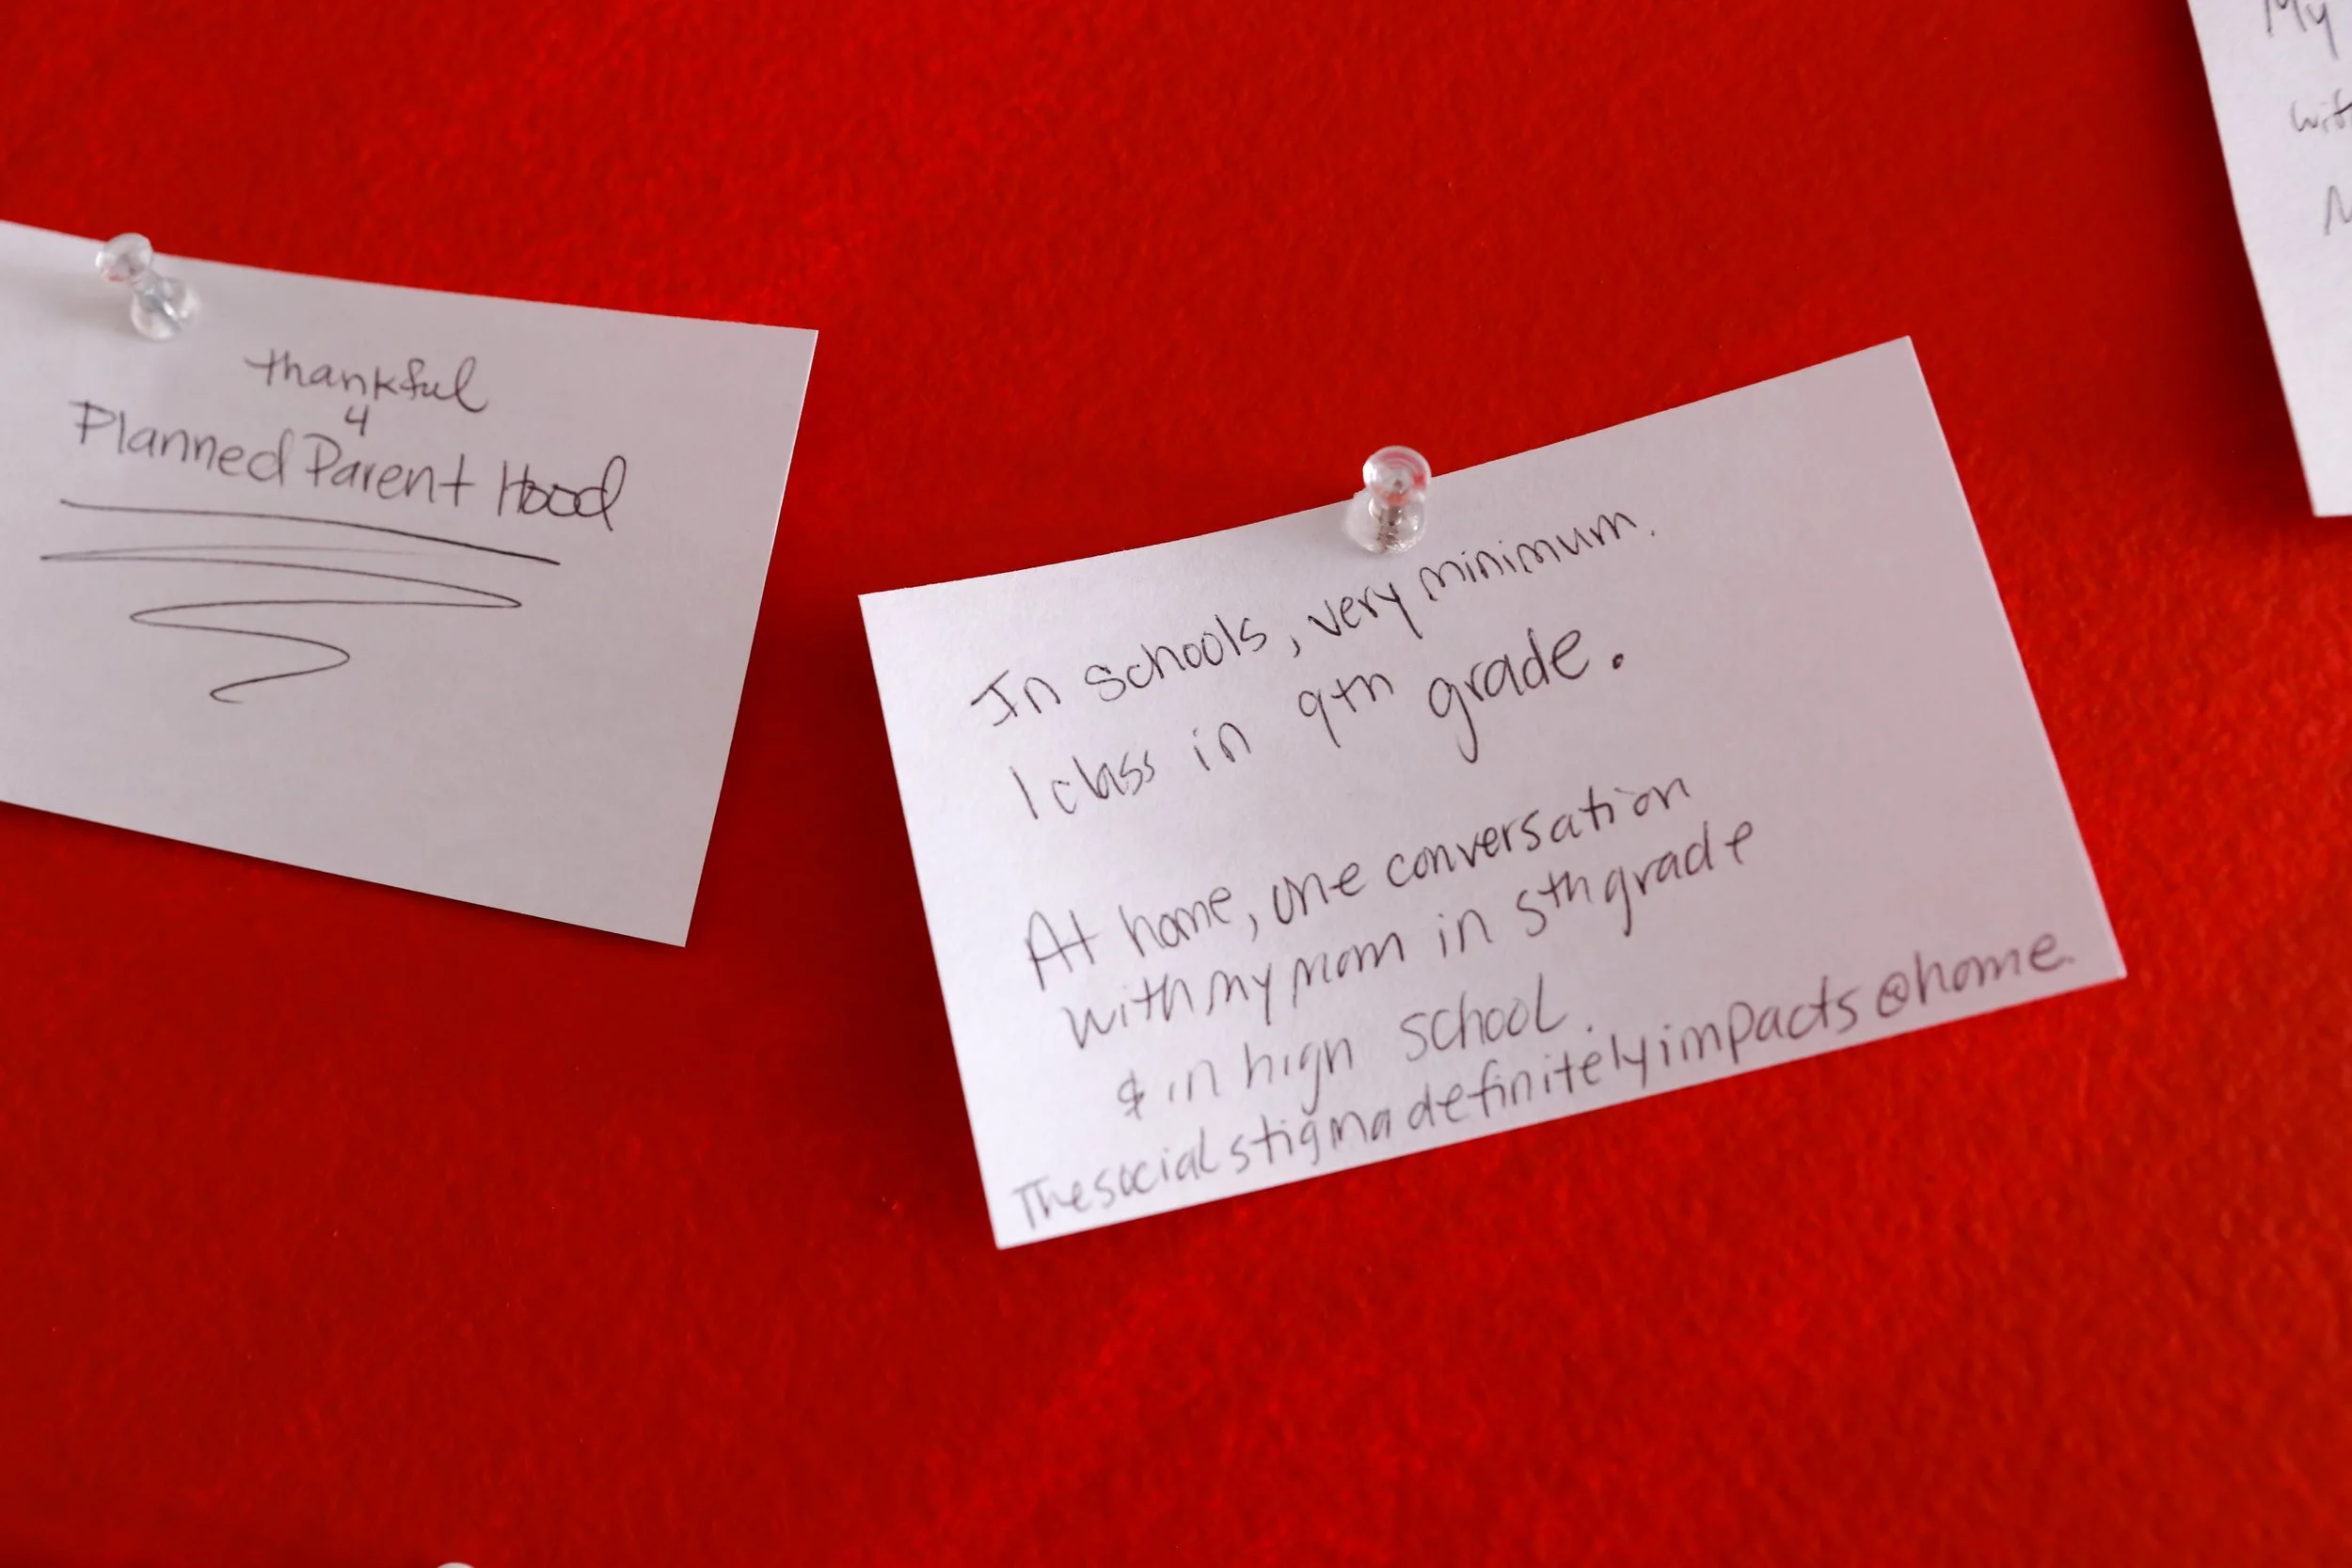 thankful
4
Planned Parent Hood
In schools, very minimum.
1 class in 9th grade.
At home, one conversation
with my mom in 5th grade
& in high school.
The social stigma definitely impacts @home.
My